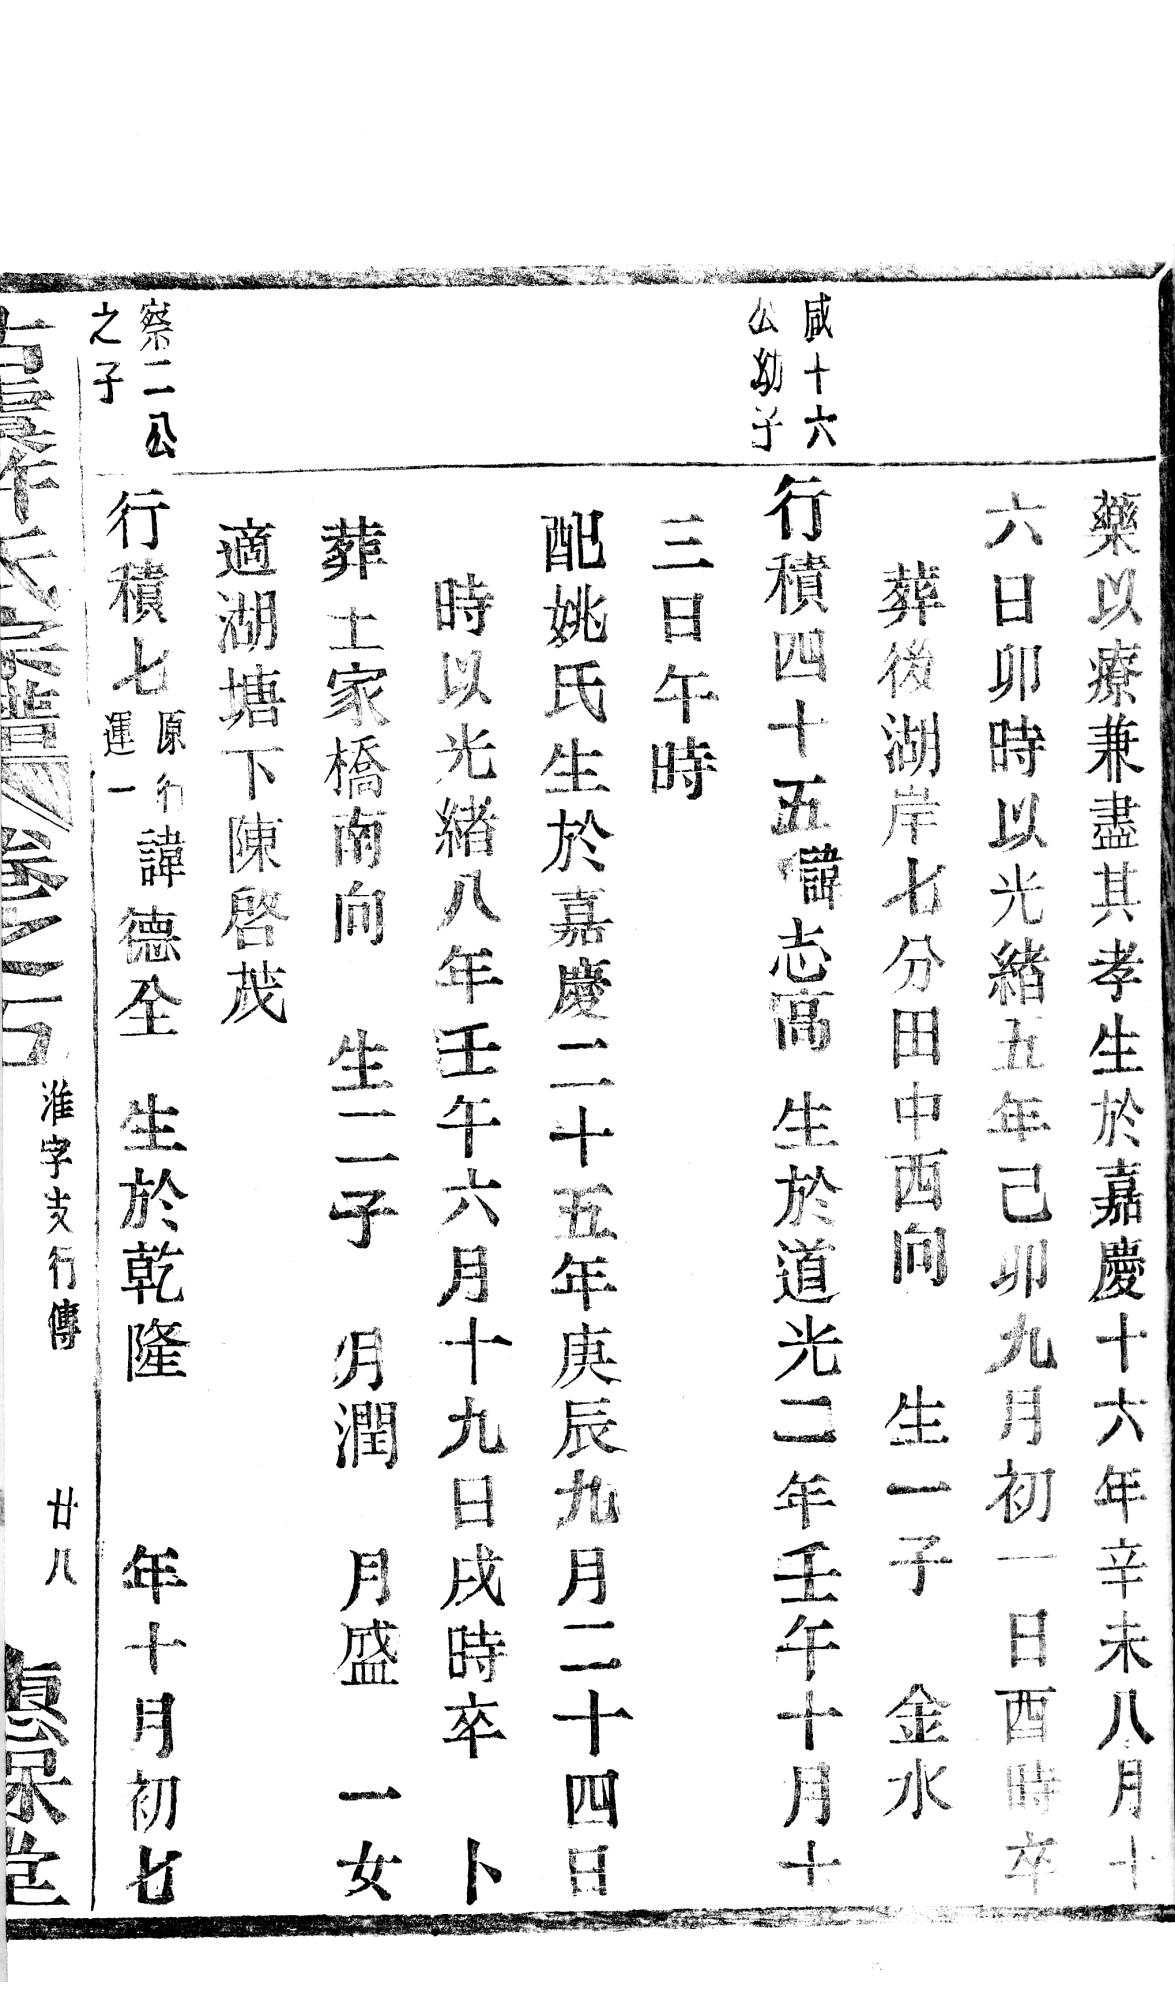 藥以療兼盡其孝生於嘉慶十六年辛未八月十
六日卯時以光緒五年己卯九月初一日酉時卒
葬後湖岸七分田中西向 生一子 金水
咸十六
公幼子
行積四十五諱志高 生於道光二年壬午十月十
三日午時
配姚氏生於嘉慶二十五年庚辰九月二十四日
時以光緒八年壬午六月十九日戌時卒 卜
葬 家橋南向 生二子 月潤 月盛 一女
適湖塘下陳啓茂
察二公
之子
行積七
原行
運一
諱德全 生於乾隆 年十月初七
氏宗譜 卷之
淮字支行傳 廿八